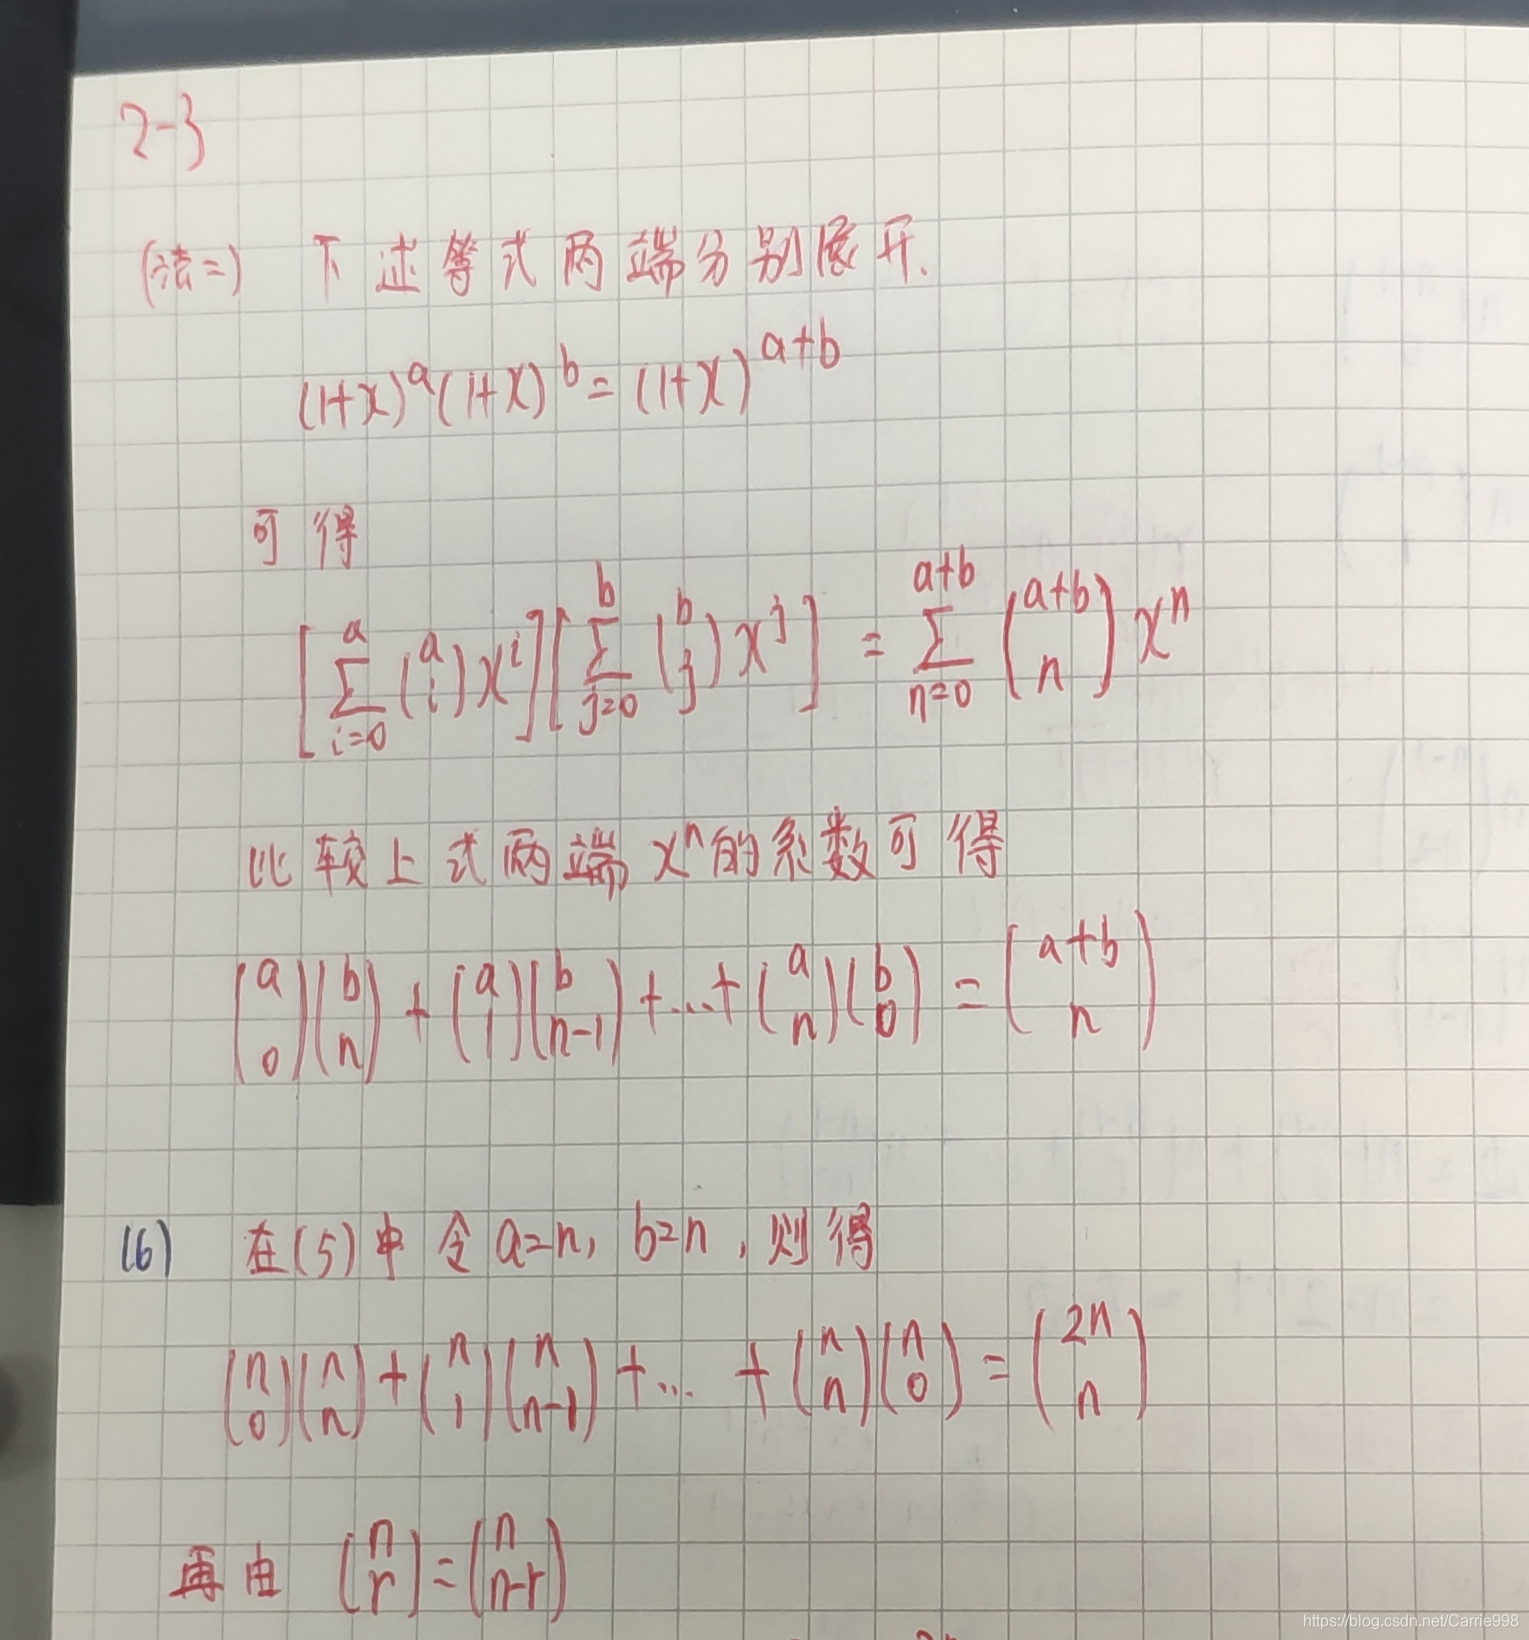 2-3
(法二) 下述等式两端分别展开.
(1+x)^a(1+x)^b=(1+x)^{a+b}
可得
[\sum_{i=0}^{a}\binom{a}{i}x^i][\sum_{j=0}^{b}\binom{b}{j}x^j]=\sum_{n=0}^{a+b}\binom{a+b}{n}x^n
比较上式两端x^n的系数可得
\binom{a}{0}\binom{b}{n}+\binom{a}{1}\binom{b}{n-1}+...+\binom{a}{n}\binom{b}{0}=\binom{a+b}{n}
(6) 在(5)中令a=n, b=n,则得
\binom{n}{0}\binom{n}{n}+\binom{n}{1}\binom{n}{n-1}+...+\binom{n}{n}\binom{n}{0}=\binom{2n}{n}
再由 \binom{n}{r}=\binom{n}{n-r}
https://blog.csdn.net/Carrie998